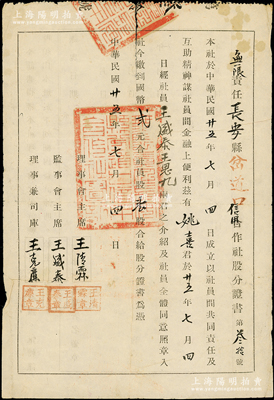 無限責任長安縣岔道口信用合作社股分證書 第叁拾號
本社於中華民國廿五年七月四日成立以社員間共同責任及
互助精神謀社員間金融上便利茲有姚喜君於廿五年七月四
日經社員王盛泰王思九君之介紹及社員全體同意願章入
社今繳到國幣貳元合社員股壹股合給股分證書爲憑
中華民國廿五年七月四日
理事會主席 王清霖
監事會主席 王盛泰
理事兼司庫 王克廉
上海陽明拍賣